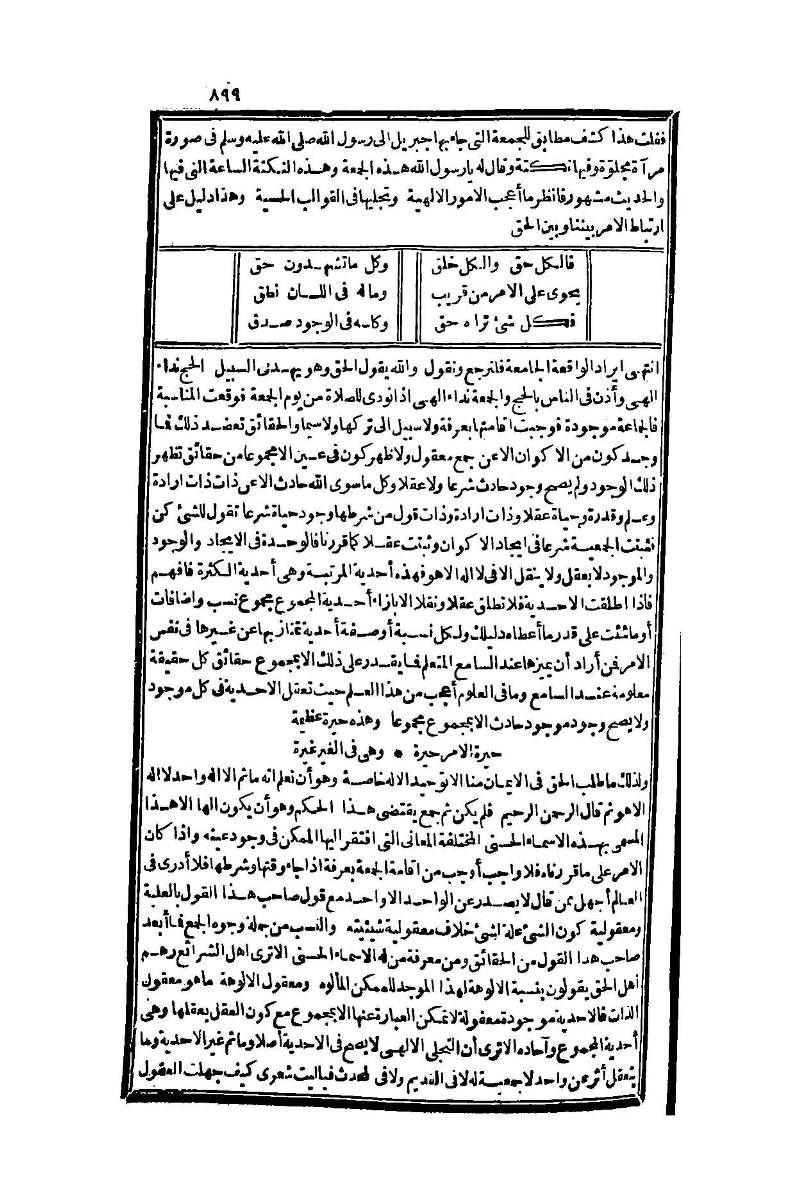 ٨٩٩
فقلت هذا كشف مطابق للجمعة التي جاء بها جبريل الى رسول الله صلى الله عليه وسلم في صورة
مرآة مجلوة وفيها نكتة وقال له يا رسول الله هذه الجمعة وهذه النكتة الساعة التي فيها
والحديث مشهور فانظر ما أعجب الامور الالهية وتجليها في القوالب الحسية وهذا دليل على
ارتباط الامر بيننا وبين الحق
فالكل حق والكل خلق وكل ما تشهدون حق
يحوى على الامر من قريب وماله في اللسان نطق
فكل شئ تراه حق وكله في الوجود صدق
انتهى ايراد الواقعة الجامعة فلنرجع ونقول والله يقول الحق وهو يهدى السبيل الحج نداء
الهى وأذن في الناس بالحج والجمعة نداء الهى اذا نودى للصلاة من يوم الجمعة فوقعت المناسبة
فالجماعة موجودة فوجبت اقامتها بعرفة ولا سبيل الى تركها ولا سيما والحقائق تعضد ذلك فما
وجد كون من الاكوان الا عن جمع معقول ولا ظهر كون في عين الا مجموعا من حقائق تظهر
ذلك الوجود ولم يصح وجود حادث شرعا ولا عقلا وكل ما سوى الله حادث الا عن ذات ذات ارادة
وعلم وقدرة وحياة عقلا وذات ارادة وذات قول من شرطها وجود حياة شرعا تقول للشئ كن
فثبتت الجمعية شرعا في ايجاد الاكوان وثبتت عقلا كما قررنا فالوحدة في الايجاد والوجود
والموجود لا يعقل ولا ينقل الا في لا اله الا هو فهذه أحدية المرتبة وهى أحدية الكثرة فافهم
فاذا اطلقت الاحدية فلا تطلق عقلا ونقلا الا بازاء أحدية المجموع مجموع نسب واضافات
أو ما شئت على قدر ما أعطاه دليلك ولكل نسبة أو صفة أحدية تمتاز بها عن غيرها في نفس
الامر فمن أراد أن يميزها عند السامع المتعلم فما يقدر على ذلك الا بمجموع حقائق كل حقيقة
معلومة عند السامع وما في العلوم أعجب من هذا العلم حيث تعقل الاحدية في كل موجود
ولا يصح وجود موجود حادث الا بمجموع مجموعا وهذه حيرة عظيمة
حيرة الامر حيرة * وهى في الغير غيرة
ولذلك ما طلب الحق في الايمان منا الا توحيد الاله خاصة وهو أن نعلم انه ما ثم الا اله واحد لا اله
الا هو ثم قال الرحمن الرحيم فلم يكن ثم جمع يقتضى هذا الحكم وهو أن يكون الها الا هذا
المسمى بهذه الاسماء الحسنى المختلفة المعانى التي افتقر اليها الممكن في وجود عينه واذا كان
الامر على ما قررناه فلا واجب أوجب من اقامة الجمعة بعرفة اذا جاء وقتها وشرطها فلا أدرى في
العالم أجهل ممن قال لا يصدر عن الواحد الا واحد مع قول صاحب هذا القول بالعلية
ومعقولية كون الشئ علة لشئ خلاف معقولية شيئيته والنسب من جملة وجوه الجمع فما أبعد
صاحب هذا القول من الحقائق ومن معرفة من له الاسماء الحسنى الا ترى اهل الشرائع وهم
أهل الحق يقولون بنسبة الالوهة لهذا الموجد للممكن المألوه ومعقول الالوهة ما هو معقول
الذات فالاحدية موجودة معقولة لا تمكن العبارة عنها الا بمجموع مع كون العقل يعقلها وهى
أحدية المجموع وآحاده الا ترى أن التجلى الالهى لا يصح في الاحدية أصلا وما ثم غير الاحدية وما
يتعقل أثر عن واحد لا جمعية له لا في القديم ولا في المحدث فياليت شعرى كيف جهلت العقول